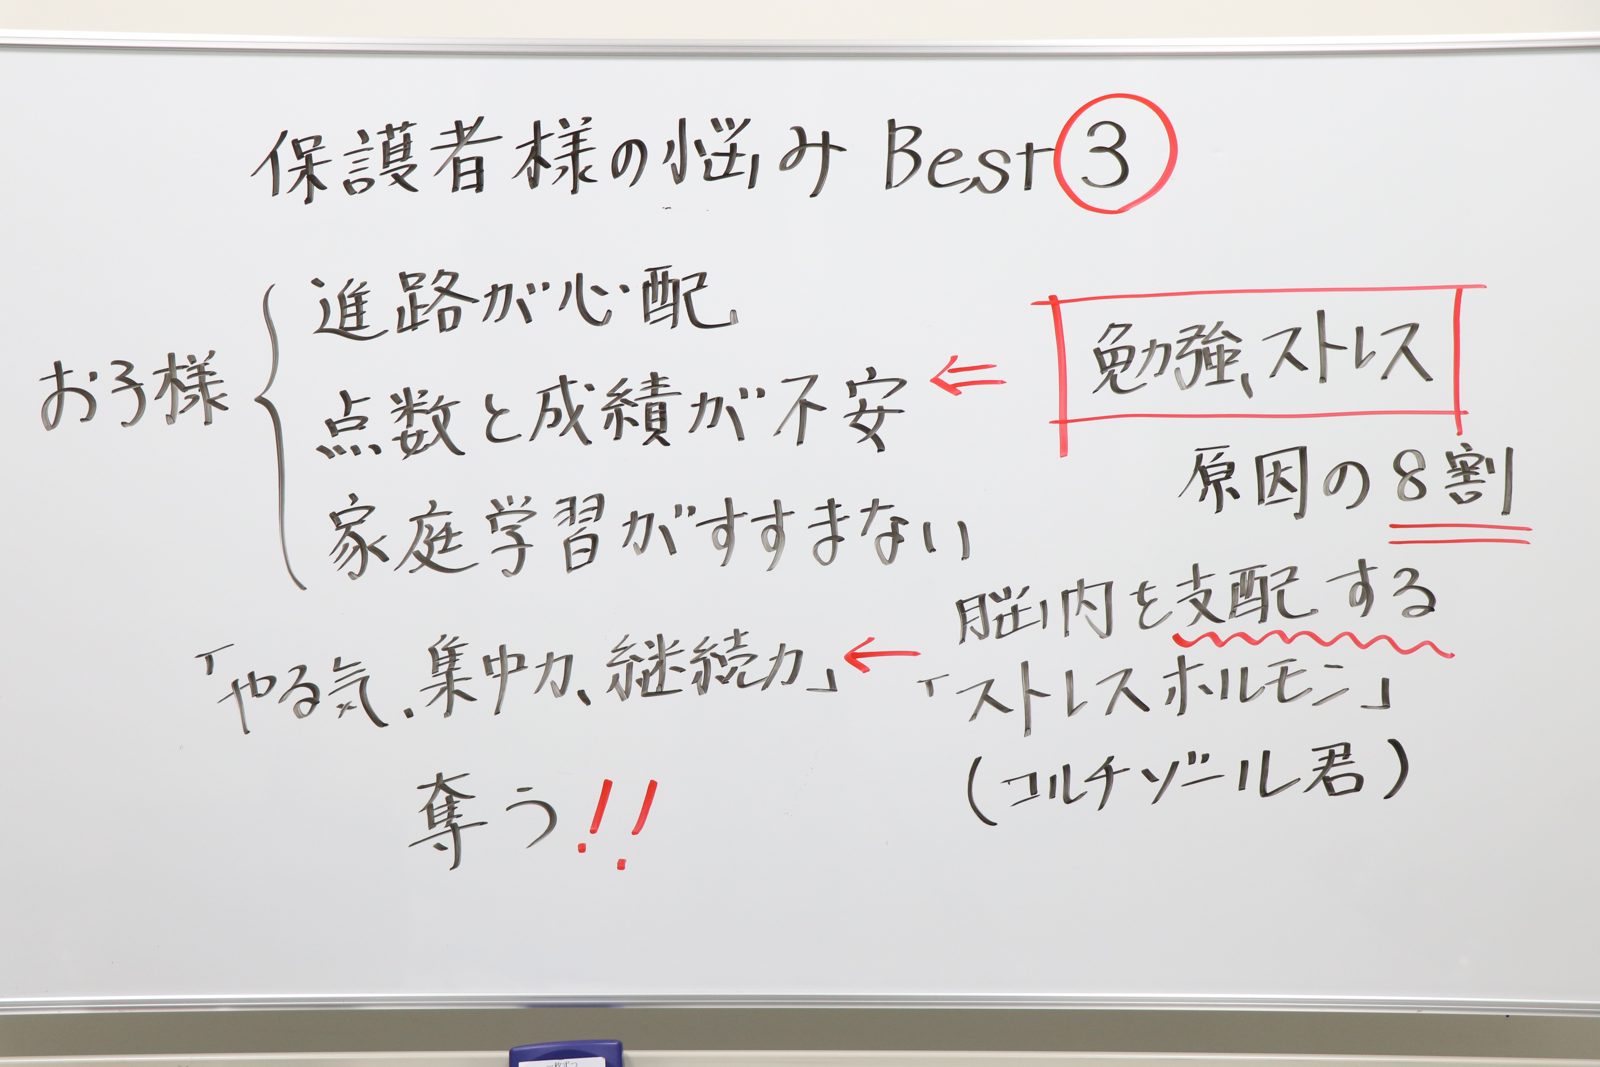 保護者様の悩みBest③
お子様
進路が心配
点数と成績が不安
家庭学習がすすまない
⇐
勉強、ストレス
原因の8割
脳内を支配する
「ストレスホルモン」
(コルチゾール君)
←
「やる気、集中力、継続力」
奪う!!